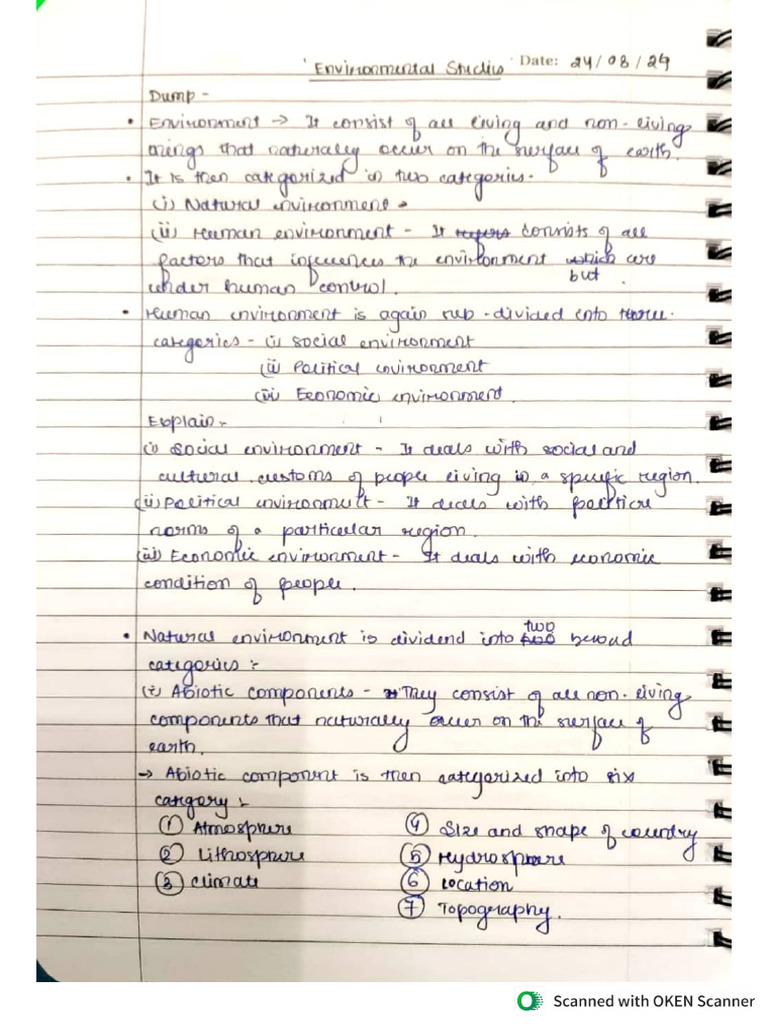 'Environmental Studies' Date: 24/08/24
Dump -
• Environment → It consist of all living and non-living
things that naturally occur on the surface of earth.
• It is then categorized in two categories.
(i) Natural environment -
(ii) Human environment - It refers consists of all
factors that influences the environment which are
but
under human control.
• Human environment is again sub-divided into three
categories - (i) social environment
(ii) Political environment
(iii) Economic environment.
Explain :-
(i) Social environment - It deals with social and
cultural customs of people living in a specific region.
(ii) Political environment - It deals with political
norms of a particular region.
(iii) Economic environment - It deals with economic
condition of people.
two
• Natural environment is dividend into two beroad
categories :-
(i) Abiotic components - They consist of all non-living
components that naturally occur on the surface of
earth.
→ Abiotic component is then categorized into six
category :-
① Atmosphere ④ Size and shape of country
② Lithosphere ⑤ Hydrosphere
③ climate ⑥ Location
⑦ Topography.
Scanned with OKEN Scanner